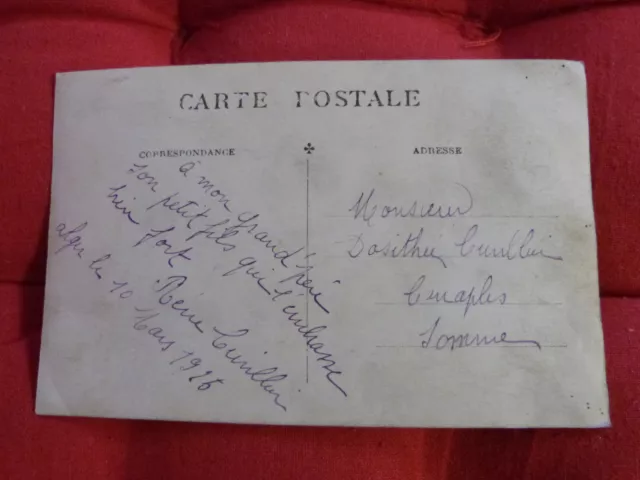 CARTE POSTALE
CORRESPONDANCE
ADRESSE
à mon grand père
son petit fils qui l'embrasse
bien fort
René Cuvillier
le 10 Mars 1926
Monsieur
Dosithée Cuvillier
Canaples
Somme